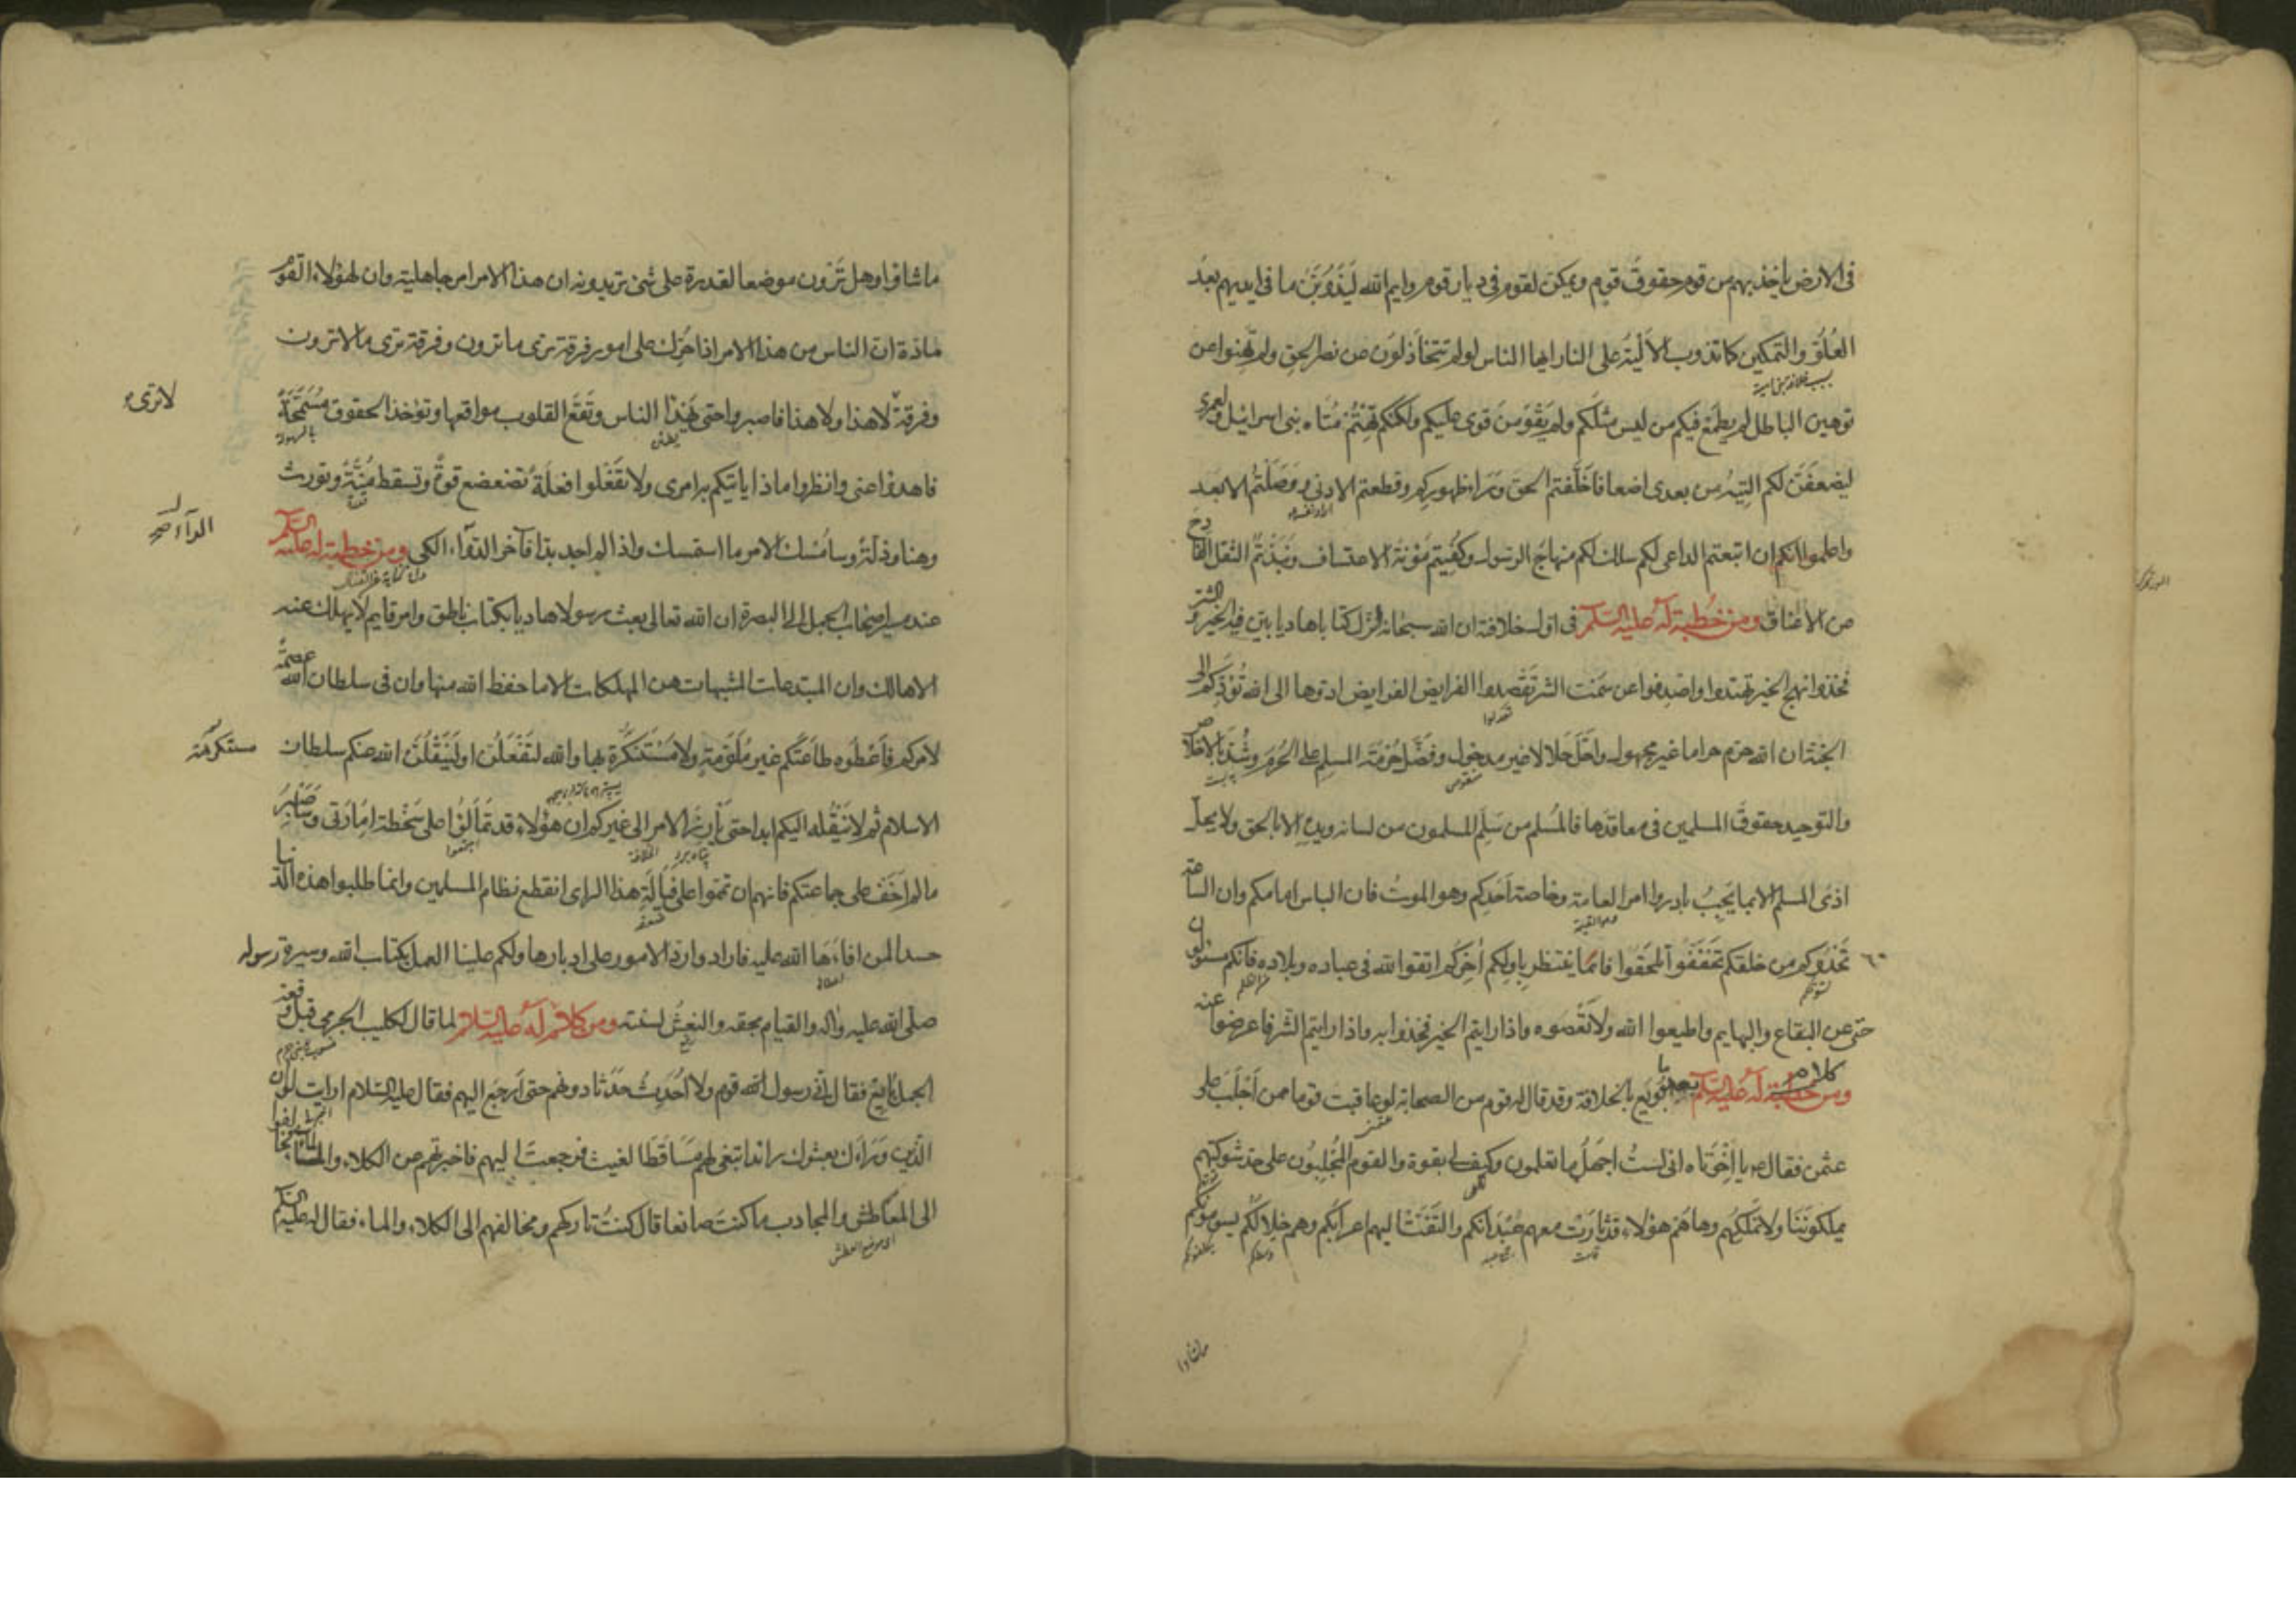 فى الارض ياخذ بهم من قوم حقوق قوم ويمكن لقوم فى ديار قوم وايم الله ليذوبن ما فى ايديهم بعد
العلو والتمكين كما تذوب الالية على النار ايها الناس لو لم تتخاذلوا عن نصر الحق ولم تهنوا عن
توهين الباطل لم يطمع فيكم من ليس مثلكم ولم يقو من قوى عليكم ولكنكم تهتم متاه بنى اسرائيل ولعمرى
ليضعفن لكم التيه من بعدى اضعافا خلفتم الحق وراء ظهوركم وقطعتم الادنى ووصلتم الابعد
واعلموا انكم ان اتبعتم الداعى لكم سلك لكم منهاج الرسول وكفيتم مؤنة الاعتساف ونبذتم الثقل الفادح
عن الاعناق ومن خطبة له عليه السلام فى اول خلافته ان الله سبحانه انزل كتابا هاديا بين فيه الخير والشر
فخذوا نهج الخير تهتدوا واصدفوا عن سمت الشر تقصدوا الفرايض الفرايض ادوها الى الله تؤدكم الى
الجنة ان الله حرم حراما غير مجهول واحل حلالا غير مدخول وفضل حرمة المسلم على الحرم وشد بالاخلاص
والتوحيد حقوق المسلمين فى معاقدها فالمسلم من سلم المسلمون من لسانه ويده الا بالحق ولا يحل
اذى المسلم الا بما يجب بادروا امر العامة وخاصة احدكم وهو الموت فان الباس امامكم وان الساعة
تحدوكم من خلفكم تخففوا تلحقوا فانما ينتظر باولكم اخركم اتقوا الله فى عباده وبلاده فانكم مسئولون
حتى عن البقاع والبهايم واطيعوا الله ولا تعصوه واذا رايتم الخير فخذوا به واذا رايتم الشر فاعرضوا عنه
ومن كلام له عليه السلام بعد ما بويع بالخلافة وقد قال له قوم من الصحابة لو عاقبت قوما ممن اجلب على
عثمن فقال يا اخوتاه انى لست اجهل ما تعلمون وكيف لى بقوة والقوم المجلبون على حد شوكتهم
يملكوننا ولا نملكهم وها هم هؤلاء قد ثارت معهم عبدانكم والتفت اليهم اعرابكم وهم خلالكم يسومونكم
ماشاوا
ماشاؤا وهل ترون موضعا لقدرة على شئ تريدونه ان هذا الامر امر جاهلية وان لهؤلاء القوم
مادة ان الناس من هذا الامر اذا حرك على امور فرقة ترى ما ترون وفرقة ترى ما لا ترون
وفرقة لا هذا ولا هذا فاصبروا حتى يهدا الناس وتقع القلوب مواقعها وتؤخذ الحقوق مسمحة
لا ترى
فاهدؤا عنى وانظروا ماذا ياتيكم به امرى ولا تفعلوا فعلة تضعضع قوة وتسقط منة وتورث
وهنا وذلة وسامسك الامر ما استمسك واذا لم اجد بدا فآخر الدواء الكى ومن خطبة له عليه السلام
عند مسير اصحاب الجمل الى البصرة ان الله تعالى بعث رسولا هاديا بكتاب ناطق وامر قايم لا يهلك عنه
الا هالك وان المبتدعات المشبهات هن المهلكات الا ما حفظ الله منها وان فى سلطان الله عصمة
لامركم فاعطوه طاعتكم غير ملومة ولا مستنكرة بها والله لتفعلن او لينقلن الله عنكم سلطان
مستكره
الاسلام ثم لا ينقله اليكم ابدا حتى يأرز الامر الى غيركم ان هؤلاء قد تمالؤا على سخطة امارتى وساصبر
ما لم اخف على جماعتكم فانهم ان تمموا على فيالة هذا الراى انقطع نظام المسلمين وانما طلبوا هذه الدنيا
حسدا لمن افاءها الله عليه فاراد وا رد الامور على ادبارها ولكم علينا العمل بكتاب الله وسيرة رسوله
صلى الله عليه واله والقيام بحقه والنعش لسنته ومن كلام له عليه السلام لما قال لكليب الجرمى قبل وقعة
الجمل بايع فقال انى رسول قوم ولا احدث حدثا دونهم حتى ارجع اليهم فقال عليه السلام ارايت لو ان
الذين وراءك بعثوك رائدا تبتغى لهم مساقط الغيث فرجعت اليهم فاخبرتهم عن الكلاء والماء فخالفوا
الى المعاطش والمجادب ما كنت صانعا قال كنت تاركهم ومخالفهم الى الكلاء والماء فقال له عليه السلام